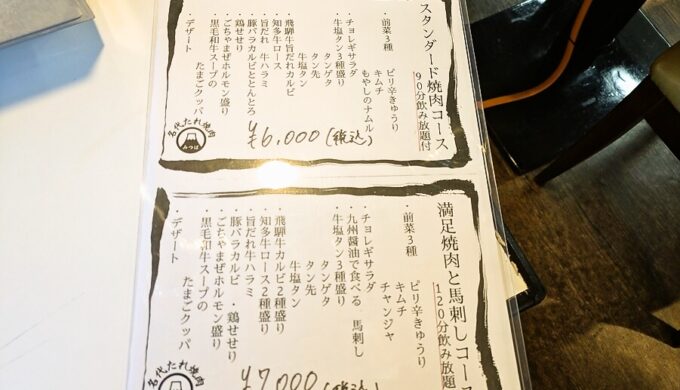 スタンダード焼肉コース
90分飲み放題付
・前菜3種
ピリ辛きゅうり
キムチ
もやしのナムル
・チョレギサラダ
・牛塩タン3種盛り
タンゲタ
タン先
牛塩タン
・飛騨牛旨だれカルビ
・知多牛ロース
・旨だれ 牛ハラミ
・豚バラカルビととんとろ
・鶏せせり
・ごちゃまぜホルモン盛り
・黒毛和牛スープの
たまごクッパ
・デザート
¥6,000(税込)
名代たれ焼肉
みつば
満足焼肉と馬刺しコース
120分飲み放題
・前菜3種
ピリ辛きゅうり
キムチ
チャンジャ
・チョレギサラダ
・九州醤油で食べる 馬刺し
・牛塩タン3種盛り
タンゲタ
タン先
牛塩タン
・飛騨牛カルビ2種盛り
・知多牛ロース2種盛り
・旨だれ牛ハラミ
・豚バラカルビ ・鶏せせり
・ごちゃまぜホルモン盛り
・黒毛和牛スープの
たまごクッパ
・デザート
¥7,000(税込)
名代たれ焼肉